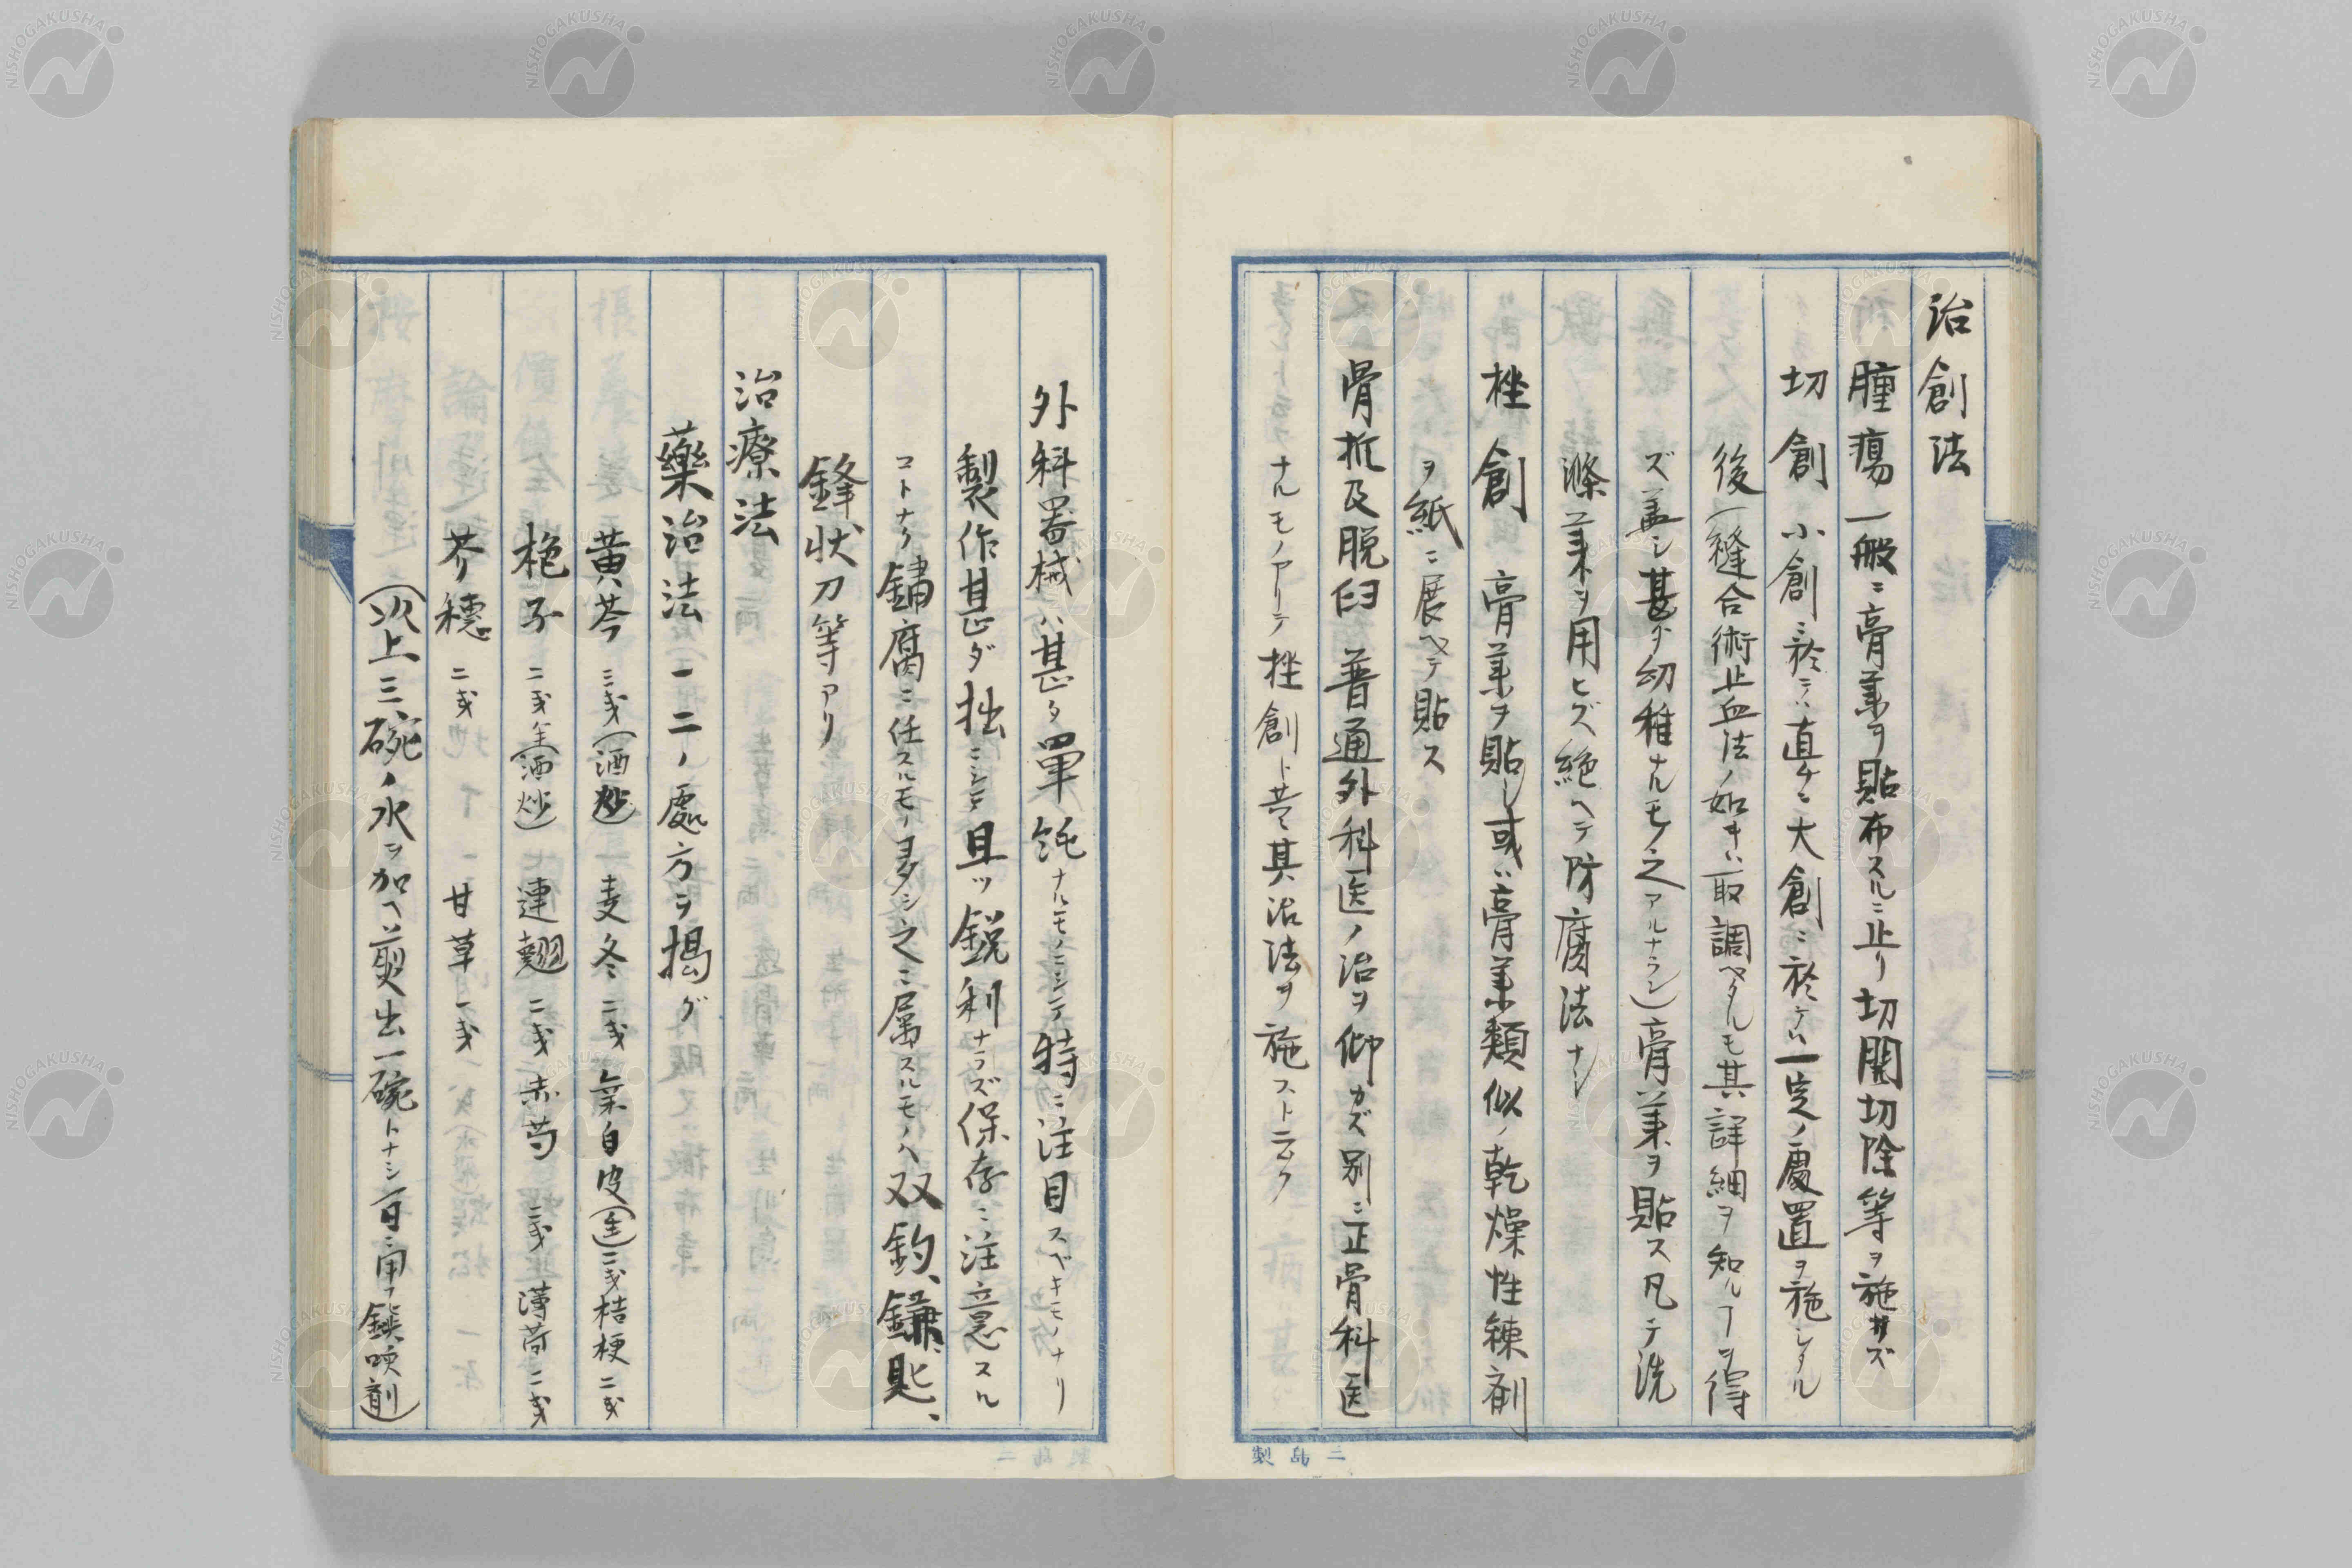 治創法
腫瘍 一般ニ膏薬ヲ貼布スルニ止リ切開切除等ヲ施サズ
切創 小創ニ於テハ直ケニ大創ニ於テハ一定ノ處置ヲ施シタル
後(縫合術止血法ノ如キハ取調ベタルモ其詳細ヲ知ルヿヲ得
ズ蓋シ甚ダ幼稚ナルモノ之アルナラン)膏薬ヲ貼ス凡テ洗
滌薬ヲ用ヒズ絶ヘテ防腐法ナシ
挫創 膏薬ヲ貼シ或ハ膏薬類似ノ乾燥性練剤
ヲ紙ニ展ベテ貼ス
骨折及脱臼 普通外科医ノ治ヲ仰カズ別ニ正骨科医
ナルモノアリテ挫創ト共ニ其治法ヲ施スト云フ
三島製
外科器械ハ甚タ単純ナルモノニシテ特ニ注目スベキモノナリ
製作甚ダ拙ニシテ且ツ鋭利ナラズ保存ニ注意スル
コトナク錆腐ニ任スルモノ多シ之ニ属スルモノハ双鈎、鎌、匙、
鋒状刀等アリ
治療法
薬治法 一二ノ處方ヲ掲グ
黄芩 三戔(酒炒) 麦冬 二戔 桒白皮(生)二戔 桔梗 二戔
梔子 二戔半(酒炒) 連翹 二戔 赤芍 二戔 薄荷 二戔
芥穂 二戔 甘草 一戔
(以上三碗ノ水ヲ加ヘ煎出一碗トナシ一日ニ用フ鎮咳剤)